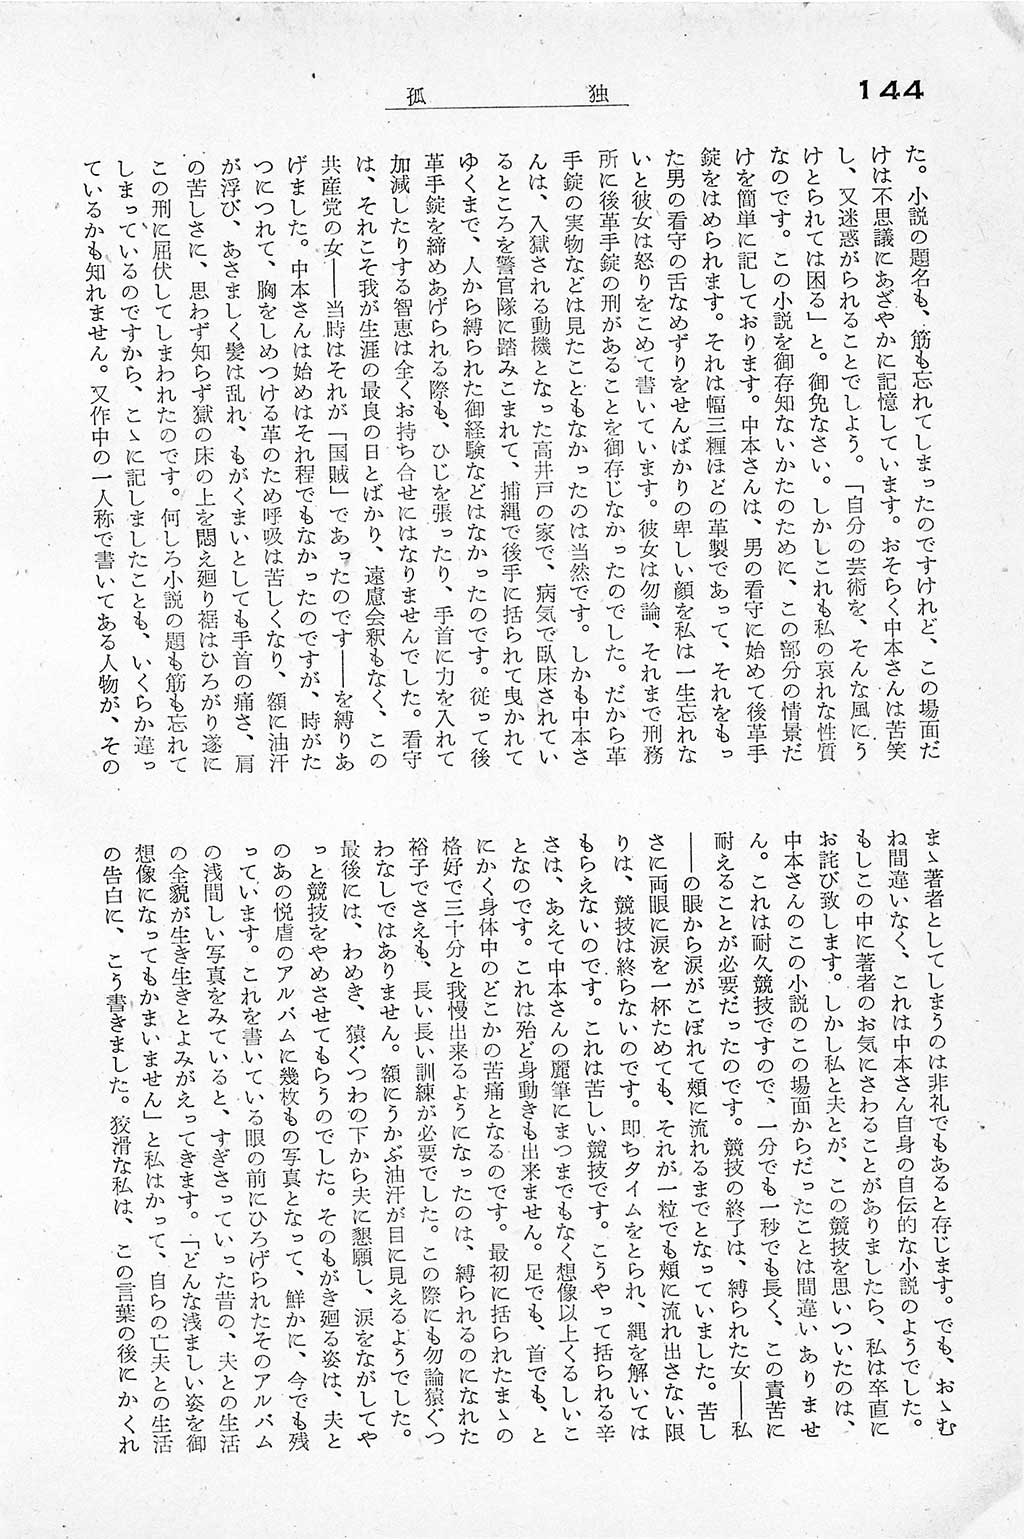 144
孤独
た。小説の題名も、筋も忘れてしまったのですけれど、この場面だ
けは不思議にあざやかに記憶しています。おそらく中本さんは苦笑
し、又迷惑がられることでしょう。「自分の芸術を、そんな風にう
けとられては困る」と。御免なさい。しかしこれも私の哀れな性質
なのです。この小説を御存知ないかたのために、この部分の情景だ
けを簡単に記しております。中本さんは、男の看守に始めて後革手
錠をはめられます。それは幅三糎ほどの革製であって、それをもっ
た男の看守の舌なめずりをせんばかりの卑しい顔を私は一生忘れな
いと彼女は怒りをこめて書いています。彼女は勿論、それまで刑務
所に後革手錠の刑があることを御存じなかったのでした。だから革
手錠の実物などは見たこともなかったのは当然です。しかも中本さ
んは、入獄される動機となった高井戸の家で、病気で臥床されてい
るところを警官隊に踏みこまれて、捕縄で後手に括られて曳かれて
ゆくまで、人から縛られた御経験などはなかったのです。従って後
革手錠を締めあげられる際も、ひじを張ったり、手首に力を入れて
加減したりする智恵は全くお持ち合せにはなりませんでした。看守
は、それこそ我が生涯の最良の日とばかり、遠慮会釈もなく、この
共産党の女――当時はそれが「国賊」であったのです――を縛りあ
げました。中本さんは始めはそれ程でもなかったのですが、時がた
つにつれて、胸をしめつける革のため呼吸は苦しくなり、額に油汗
が浮び、あさましく髪は乱れ、もがくまいとしても手首の痛さ、肩
の苦しさに、思わず知らず獄の床の上を悶え廻り裾はひろがり遂に
この刑に屈伏してしまわれたのです。何しろ小説の題も筋も忘れて
しまっているのですから、こゝに記しましたことも、いくらか違っ
ているかも知れません。又作中の一人称で書いてある人物が、その
まゝ著者としてしまうのは非礼でもあると存じます。でも、おゝむ
ね間違いなく、これは中本さん自身の自伝的な小説のようでした。
もしこの中に著者のお気にさわることがありましたら、私は卒直に
お詫び致します。しかし私と夫とが、この競技を思いついたのは、
中本さんのこの小説のこの場面からだったことは間違いありませ
ん。これは耐久競技ですので、一分でも一秒でも長く、この責苦に
耐えることが必要だったのです。競技の終了は、縛られた女――私
――の眼から涙がこぼれて頬に流れるまでとなっていました。苦し
さに両眼に涙を一杯ためても、それが一粒でも頬に流れ出さない限
りは、競技は終らないのです。即ちタイムをとられ、縄を解いては
もらえないのです。これは苦しい競技です。こうやって括られる辛
さは、あえて中本さんの麗筆にまつまでもなく想像以上くるしいこ
となのです。これは殆ど身動きも出来ません。足でも、首でも、と
にかく身体中のどこかの苦痛となるのです。最初に括られたまゝの
格好で三十分と我慢出来るようになったのは、縛られるのになれた
裕子でさえも、長い長い訓練が必要でした。この際にも勿論猿ぐつ
わなしではありません。額にうかぶ油汗が目に見えるようでした。
最後には、わめき、猿ぐつわの下から夫に懇願し、涙をながしてや
っと競技をやめさせてもらうのでした。そのもがき廻る姿は、夫と
のあの悦虐のアルバムに幾枚もの写真となって、鮮かに、今でも残
っています。これを書いている眼の前にひろげられたそのアルバム
の浅間しい写真をみていると、すぎさっていった昔の、夫との生活
の全貌が生き生きとよみがえってきます。「どんな浅ましい姿を御
想像になってもかまいません」と私はかって、自らの亡夫との生活
の告白に、こう書きました。狡滑な私は、この言葉の後にかくれ